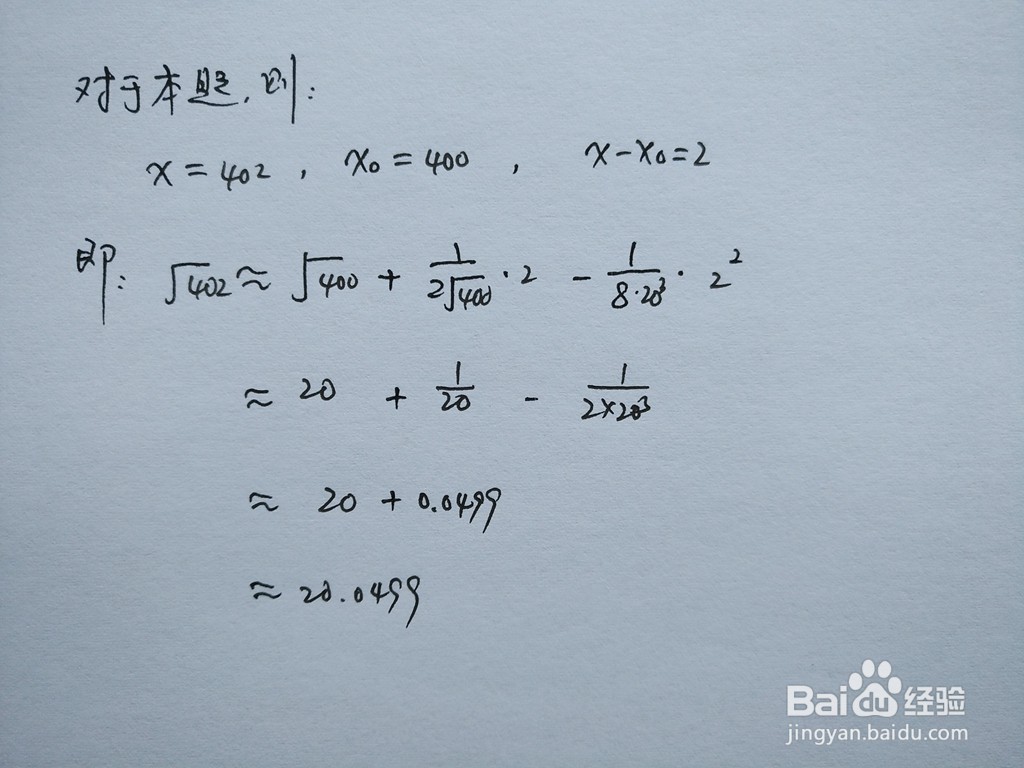 对于本题,则:
x=402, x₀=400, x-x₀=2
即: √402≈√400+1/(2√400)·2-1/(8·20³)·2²
≈20+1/20-1/(2×20³)
≈20+0.0499
≈20.0499
Bai du 经验
jingyan.baidu.com